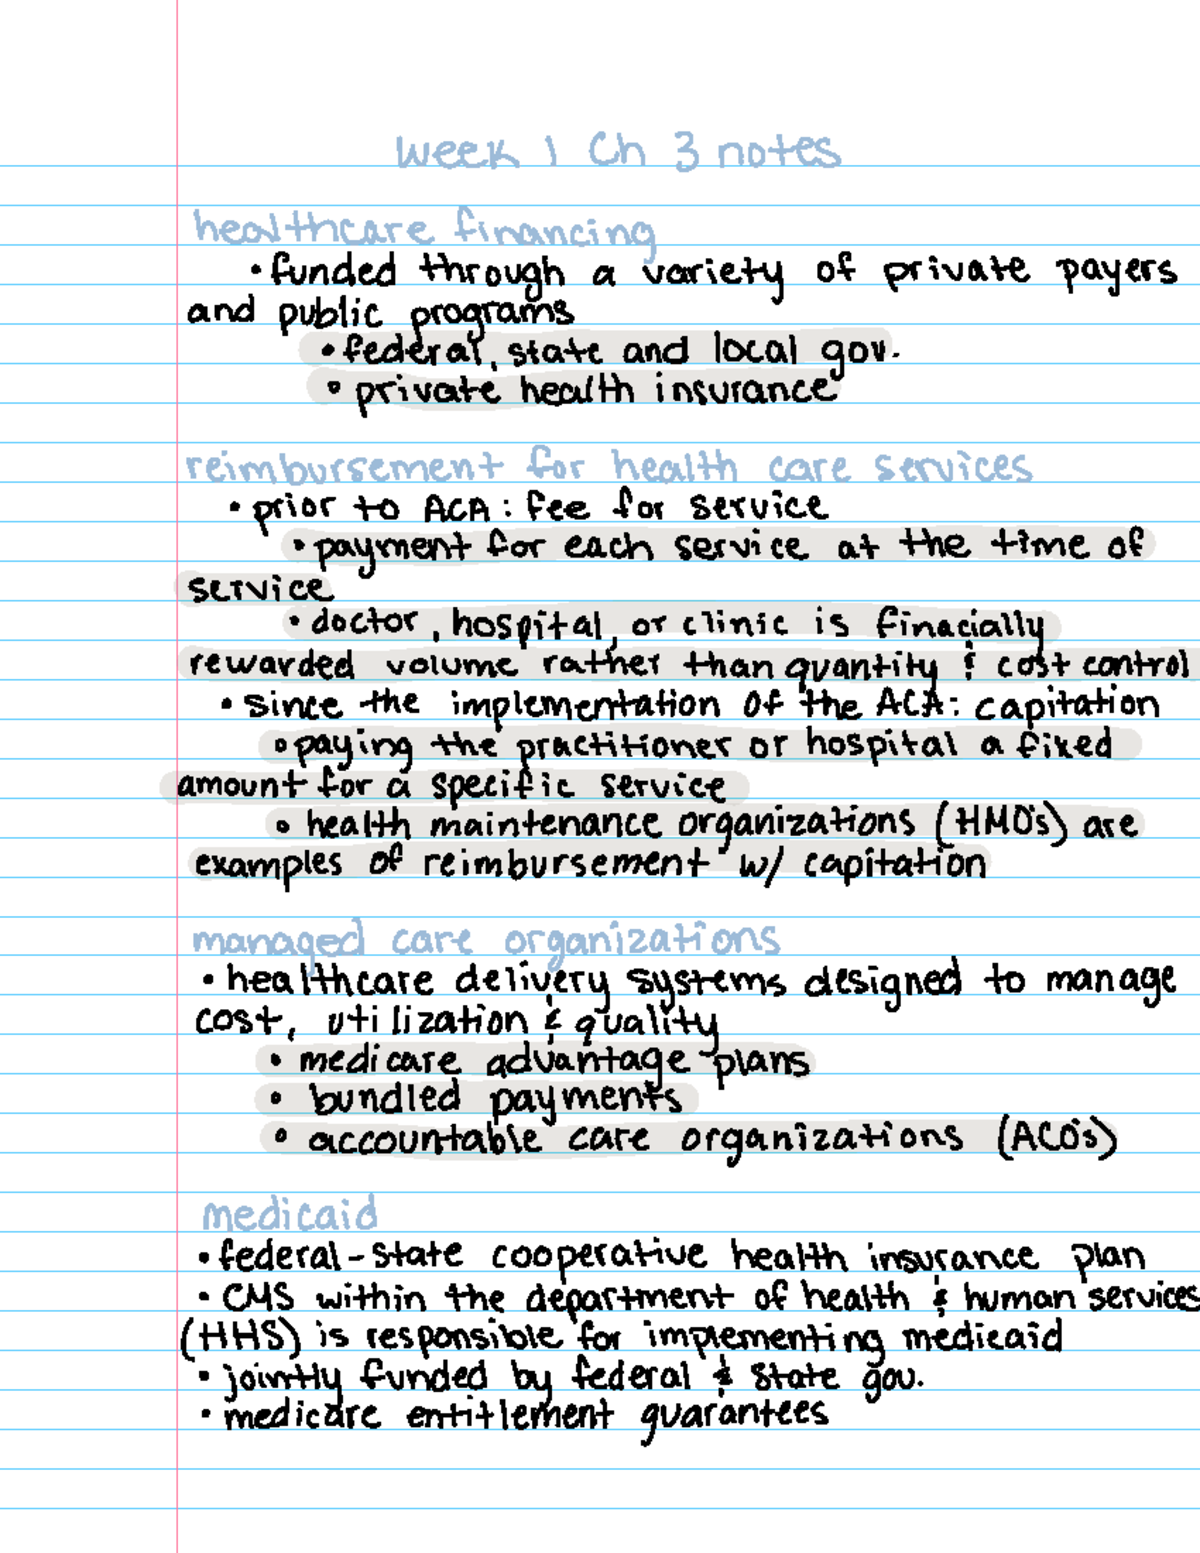 week 1 Ch 3 notes
healthcare financing
• funded through a variety of private payers
and public programs
• federal, state and local gov.
• private health insurance
reimbursement for health care services
• prior to ACA: fee for service
• payment for each service at the time of
service
• doctor, hospital, or clinic is finacially
rewarded volume rather than quantity & cost control
• since the implementation of the ACA: capitation
• paying the practitioner or hospital a fixed
amount for a specific service
• health maintenance organizations (HMO's) are
examples of reimbursement w/ capitation
managed care organizations
• healthcare delivery systems designed to manage
cost, utilization & quality
• medicare advantage plans
• bundled payments
• accountable care organizations (ACO's)
medicaid
• federal-state cooperative health insurance plan
• CMS within the department of health & human services
(HHS) is responsible for implementing medicaid
• jointly funded by federal & state gov.
• medicare entitlement guarantees